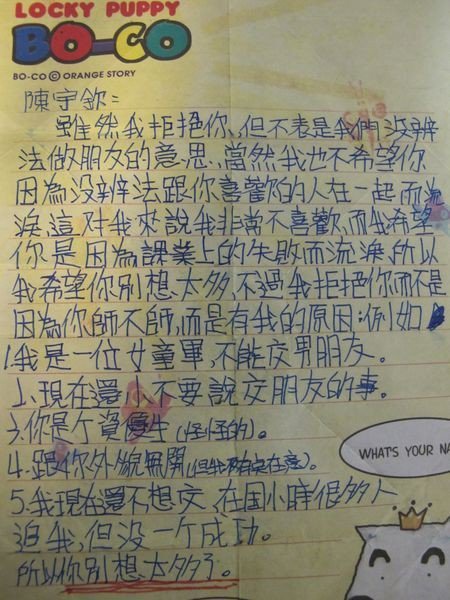 LOCKY PUPPY
BO-CO
BO-CO © ORANGE STORY
陳守欽：
雖然我拒絕你,但不表是我們沒辦
法做朋友的意思,當然我也不希望你
因為沒辦法跟你喜歡的人在一起而流
淚,這对我來說我非常不喜歡,而我希望
你是因為課業上的失敗而流淚,所以
我希望你別想太多,不過我拒絕你而不是
因為你師不師,而是有我的原因:例如
1.我是一位女童軍,不能交男朋友。
2.現在還小,不要說交朋友的事。
3.你是个資優生(怪怪的)。
4.跟你外貌無關(但我有在意)。
5.我現在還不想交,在国小時很多人
追我,但没一个成功。
所以你別想太多了。
WHAT'S YOUR NA